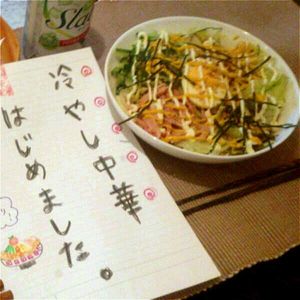 冷やし中華
はじめました。
Sla